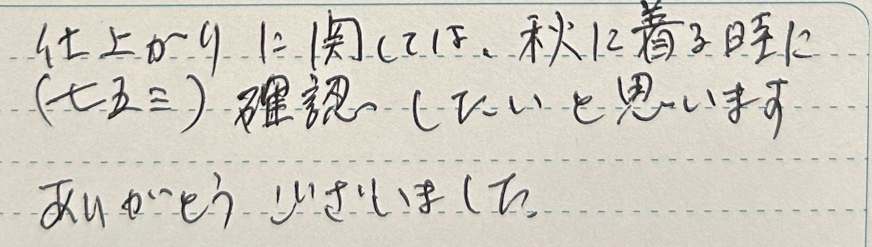 仕上がりに関しては、秋に着る時に
(七五三) 確認したいと思います
ありがとうございました。